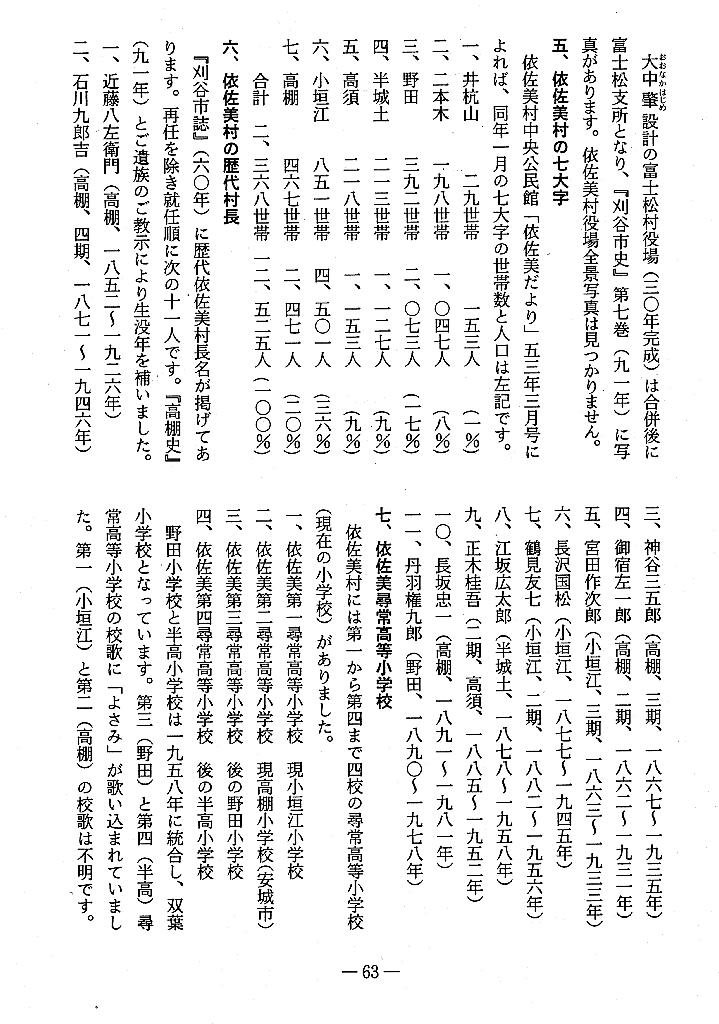 大中肇設計の富士松村役場(三〇年完成)は合併後に
富士松支所となり、『刈谷市史』第七巻(九一年)に写
真があります。依佐美村役場全景写真は見つかりません。
五、依佐美村の七大字
依佐美村中央公民館「依佐美だより」五三年三月号に
よれば、同年一月の七大字の世帯数と人口は左記です。
一、井杭山 二九世帯 一五三人 (一%)
二、二本木 一九八世帯 一、〇四七人 (八%)
三、野田 三九二世帯 二、〇七三人 (一七%)
四、半城土 二一三世帯 一、一二七人 (九%)
五、高須 二一八世帯 一、一五三人 (九%)
六、小垣江 八五一世帯 四、五〇一人 (三六%)
七、高棚 四六七世帯 二、四七一人 (二〇%)
合計 二、三六八世帯 一二、五二五人(一〇〇%)
六、依佐美村の歴代村長
『刈谷市誌』(六〇年)に歴代依佐美村長名が掲げてあ
ります。再任を除き就任順に次の十一人です。『高棚史』
(九一年)とご遺族のご教示により生没年を補いました。
一、近藤八左衛門(高棚、一八五二~一九二六年)
二、石川九郎吉(高棚、四期、一八七一~一九四六年)
三、神谷三五郎(高棚、三期、一八六七~一九三五年)
四、御宿左一郎(高棚、二期、一八六二~一九三一年)
五、宮田作次郎(小垣江、三期、一八六三~一九三三年)
六、長沢国松(小垣江、一八七七~一九四五年)
七、鶴見友七(小垣江、二期、一八八二~一九五六年)
八、江坂広太郎(半城土、一八七八~一九五八年)
九、正木桂吾(二期、高須、一八八五~一九五二年)
一〇、長坂忠一(高棚、一八九一~一九八一年)
一一、丹羽権九郎(野田、一八九〇~一九七八年)
七、依佐美尋常高等小学校
依佐美村には第一から第四まで四校の尋常高等小学校
(現在の小学校)がありました。
一、依佐美第一尋常高等小学校 現小垣江小学校
二、依佐美第二尋常高等小学校 現高棚小学校(安城市)
三、依佐美第三尋常高等小学校 後の野田小学校
四、依佐美第四尋常高等小学校 後の半高小学校
野田小学校と半高小学校は一九五八年に統合し、双葉
小学校となっています。第三(野田)と第四(半高)尋
常高等小学校の校歌に「よさみ」が歌い込まれていまし
た。第一(小垣江)と第二(高棚)の校歌は不明です。
― 63 ―